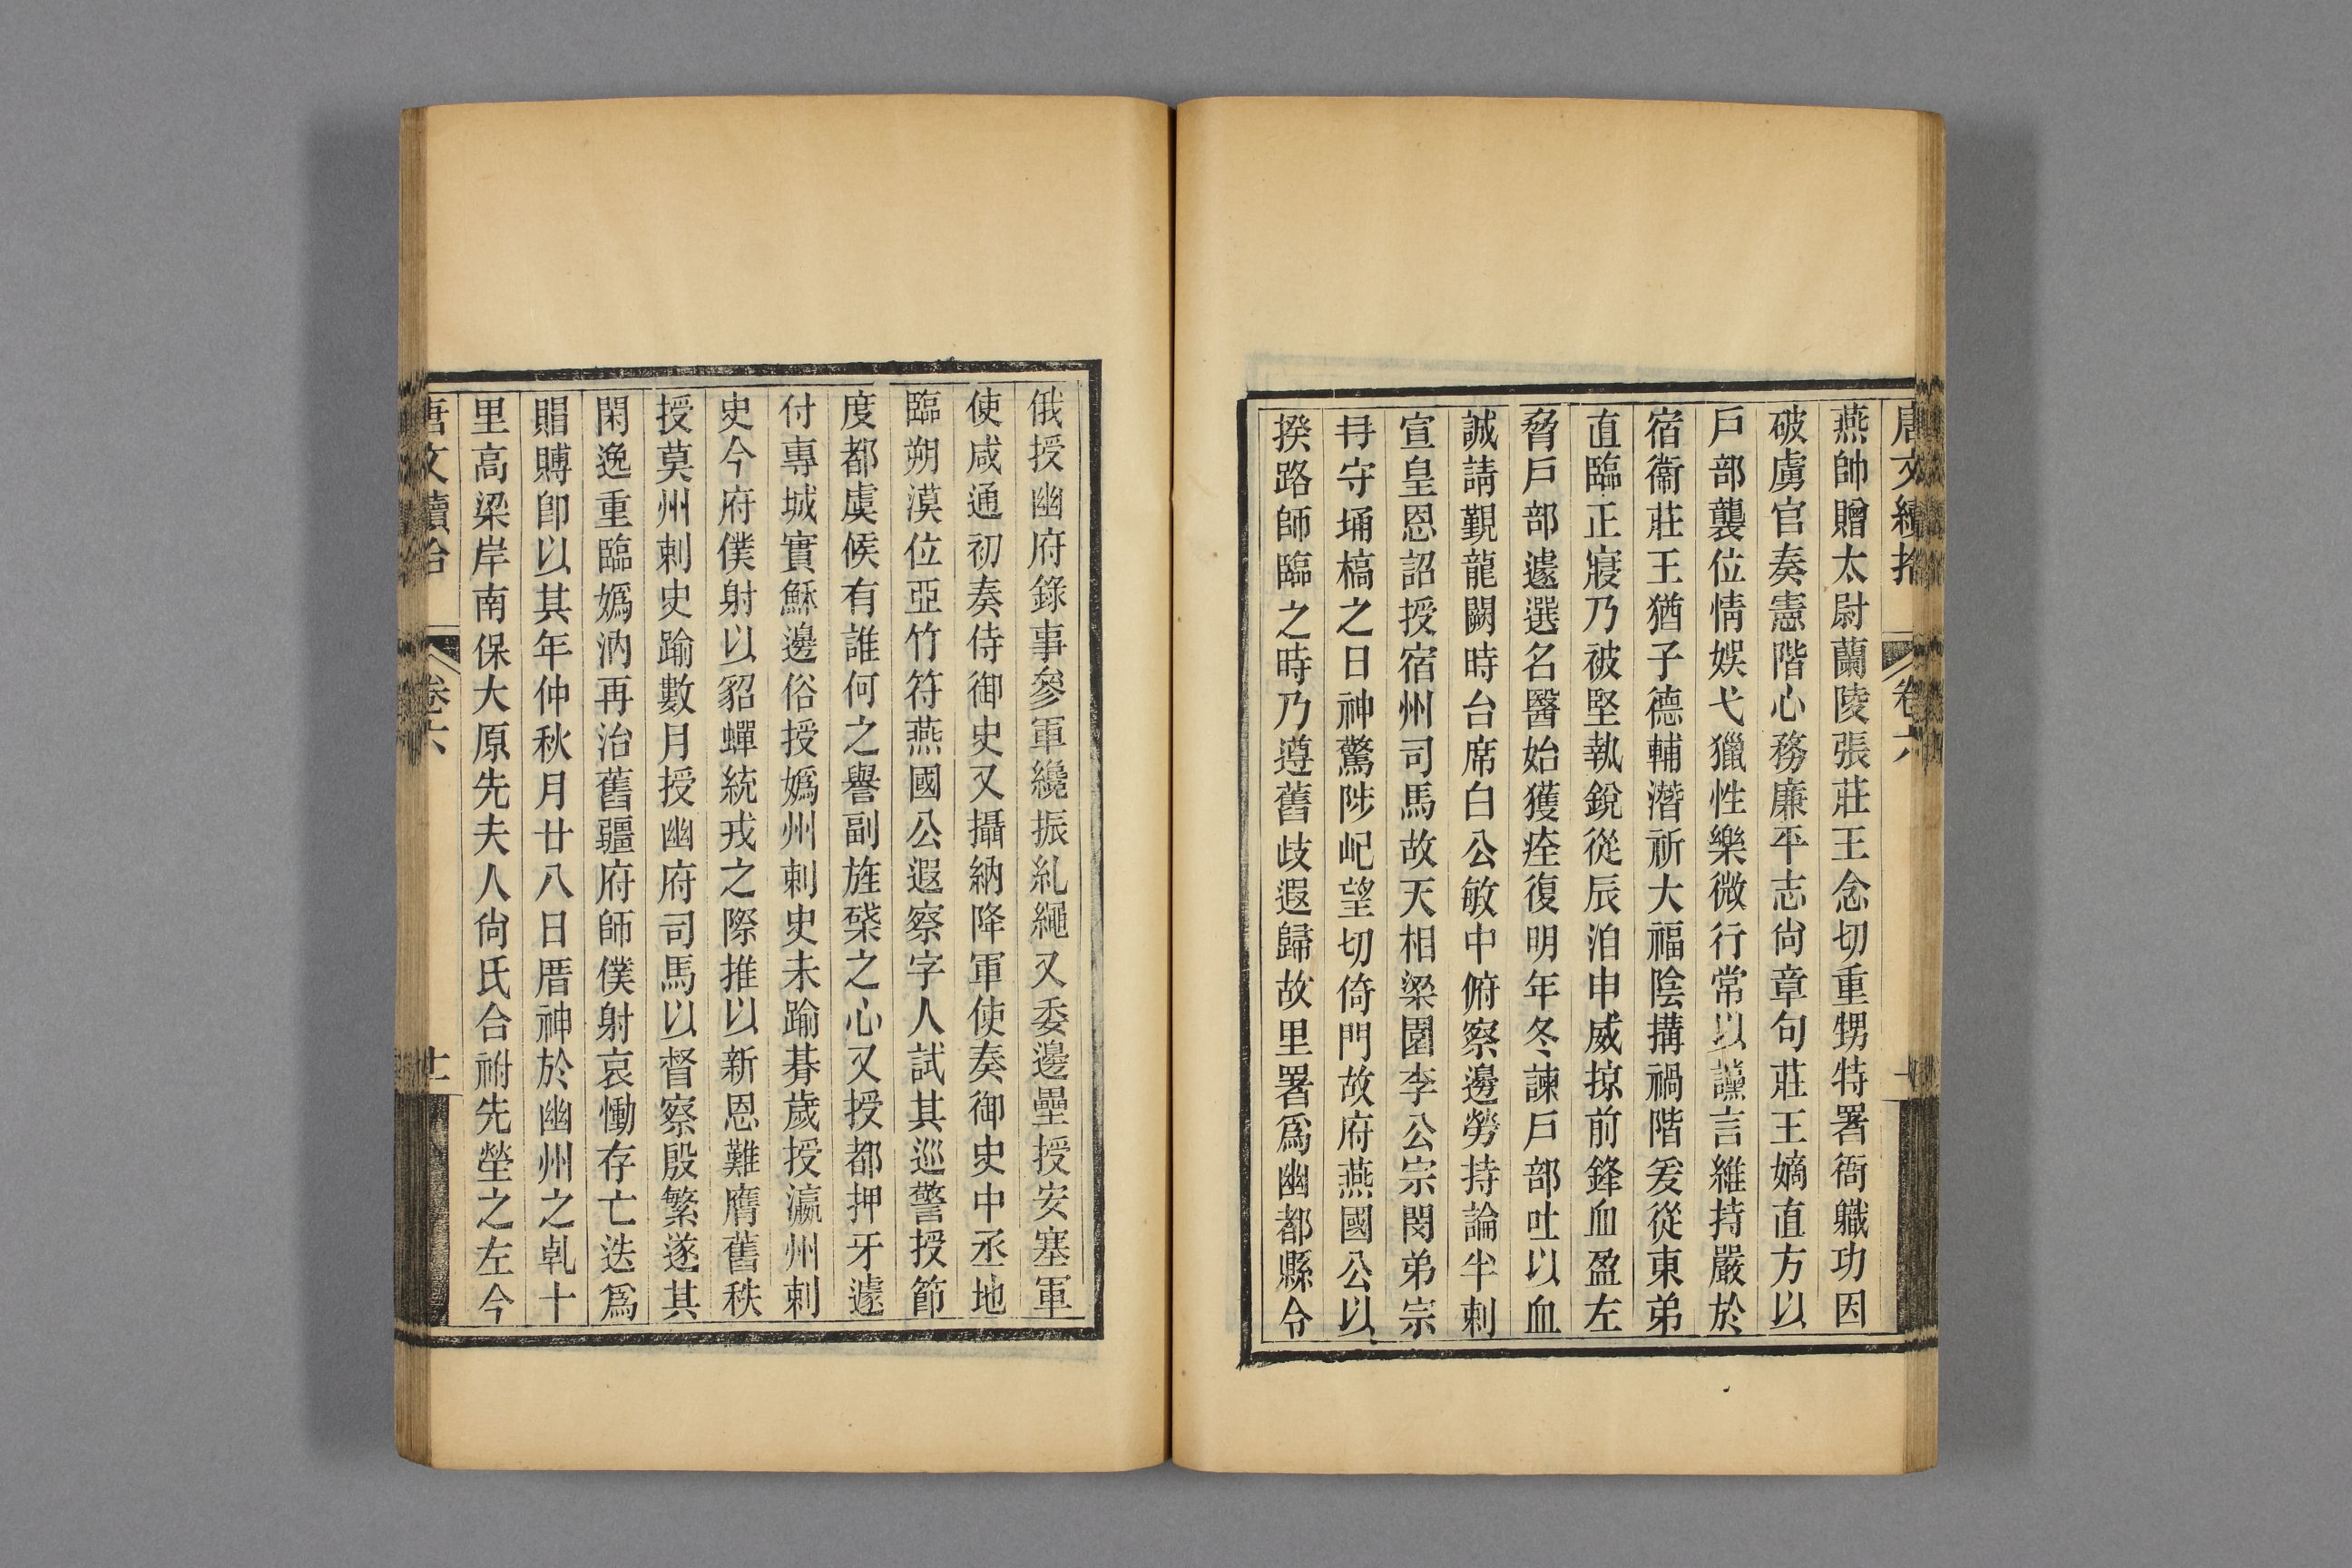 唐文續拾 卷六
燕帥贈太尉蘭陵張莊王念切重甥特署衙職功因
破虜官奏憲階心務廉平志尙章句莊王嫡直方以
戶部襲位情娛弋獵性樂微行常以讜言維持嚴於
宿衞莊王猶子德輔潛祈大福陰搆禍階爰從東弟
直臨正寢乃被堅執銳從辰洎申威掠前鋒血盈左
脅戶部遽選名醫始獲痊復明年冬諫戶部吐以血
誠請覲龍闕時台席白公敏中俯察邊勞持論半刺
宣皇恩詔授宿州司馬故天相梁園李公宗閔弟宗
冄守埇橋之日神驚陟屺望切倚門故府燕國公以
揆路師臨之時乃遵舊歧遐歸故里署爲幽都縣令
俄授幽府錄事參軍纔振糺繩又委邊壘授安塞軍
使咸通初奏侍御史又攝納降軍使奏御史中丞地
臨朔漠位亞竹符燕國公遐察字人試其巡警授節
度都虞候有誰何之譽副旌棨之心又授都押牙遽
付專城實穌邊俗授嬀州刺史未踰朞歲授瀛州刺
史今府僕射以貂蟬統戎之際推以新恩難膺舊秩
授莫州刺史踰數月授幽府司馬以督察殷繁遂其
閑逸重臨嬀汭再治舊疆府師僕射哀慟存亡迭爲
賵賻卽以其年仲秋月廿八日厝神於幽州之乹十
里高梁岸南保大原先夫人尙氏合祔先塋之左今
唐文續拾 卷六 十一